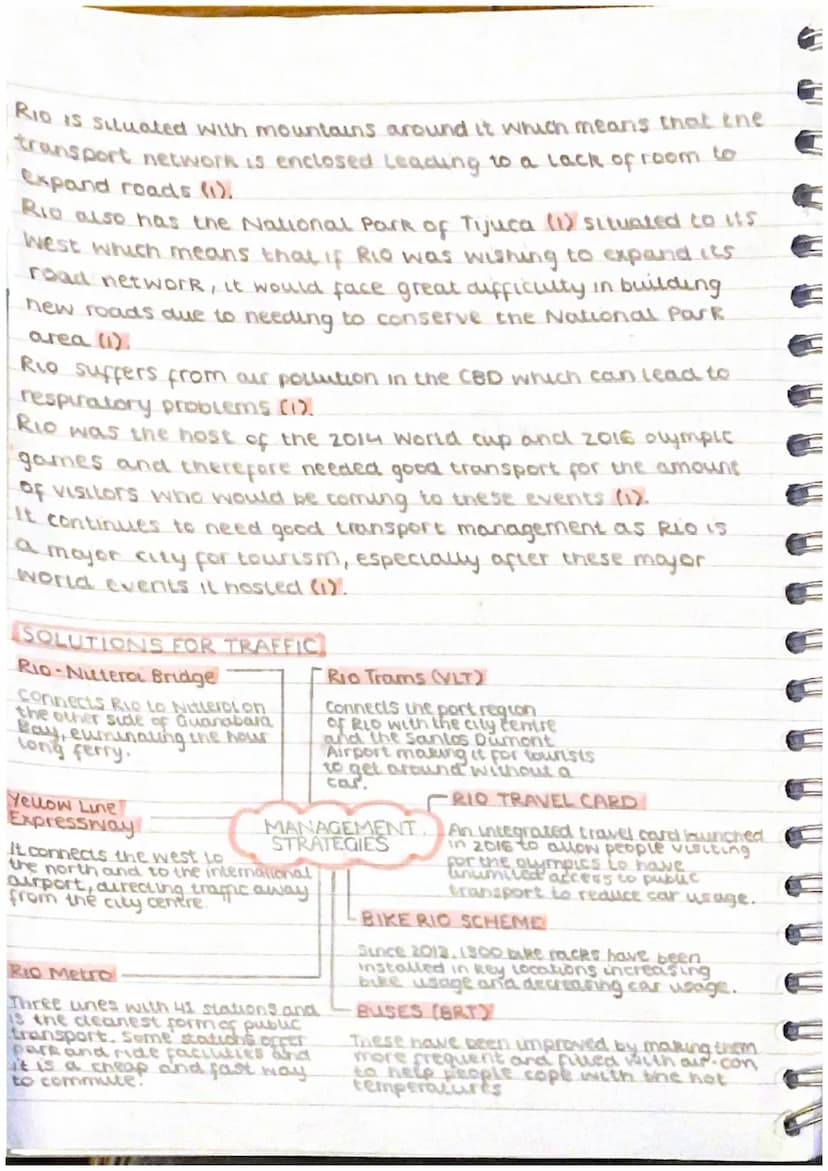 Rio is situated with mountains around it which means that the
transport network is enclosed leading to a lack of room to
expand roads (1).
Rio also has the National Park of Tijuca (1) situated to its
West which means that if Rio was wishing to expand its
road network, it would face great difficulty in building
new roads due to needing to conserve the National Park
area (1).
Rio suffers from air pollution in the CBD which can lead to
respiratory problems (1).
Rio was the host of the 2014 World cup and 2016 olympic
games and therefore needed good transport for the amount
of visitors who would be coming to these events (1).
It continues to need good transport management as Rio is
a major city for tourism, especially after these major
world events it hosted (1).
SOLUTIONS FOR TRAFFIC
Rio-Nitteroi Bridge
Connects Rio to Nitteroi on
the other side of Guanabara
Bay, eliminating the hour
long ferry.
Rio Trams (VLT)
Connects the port region
of Rio with the city centre
and the Santos Dumont
Airport making it for tourists
to get around without a
car.
Yellow Line
Expressway
It connects the west to
the north and to the international
airport, directing traffic away
from the city centre.
MANAGEMENT
STRATEGIES
RIO TRAVEL CARD
An integrated travel card launched
in 2016 to allow people visiting
for the olympics to have
unlimited access to public
transport to reduce car usage.
BIKE RIO SCHEME
Since 2012, 1300 bike racks have been
installed in key locations increasing
bike usage and decreasing car usage.
Rio Metro
Three lines with 41 stations and
is the cleanest form of public
transport. Some stations offer
park and ride facilities and
it is a cheap and fast way
to commute.
BUSES (BRT)
These have been improved by making them
more frequent and filled with air-con
to help people cope with the hot
temperatures